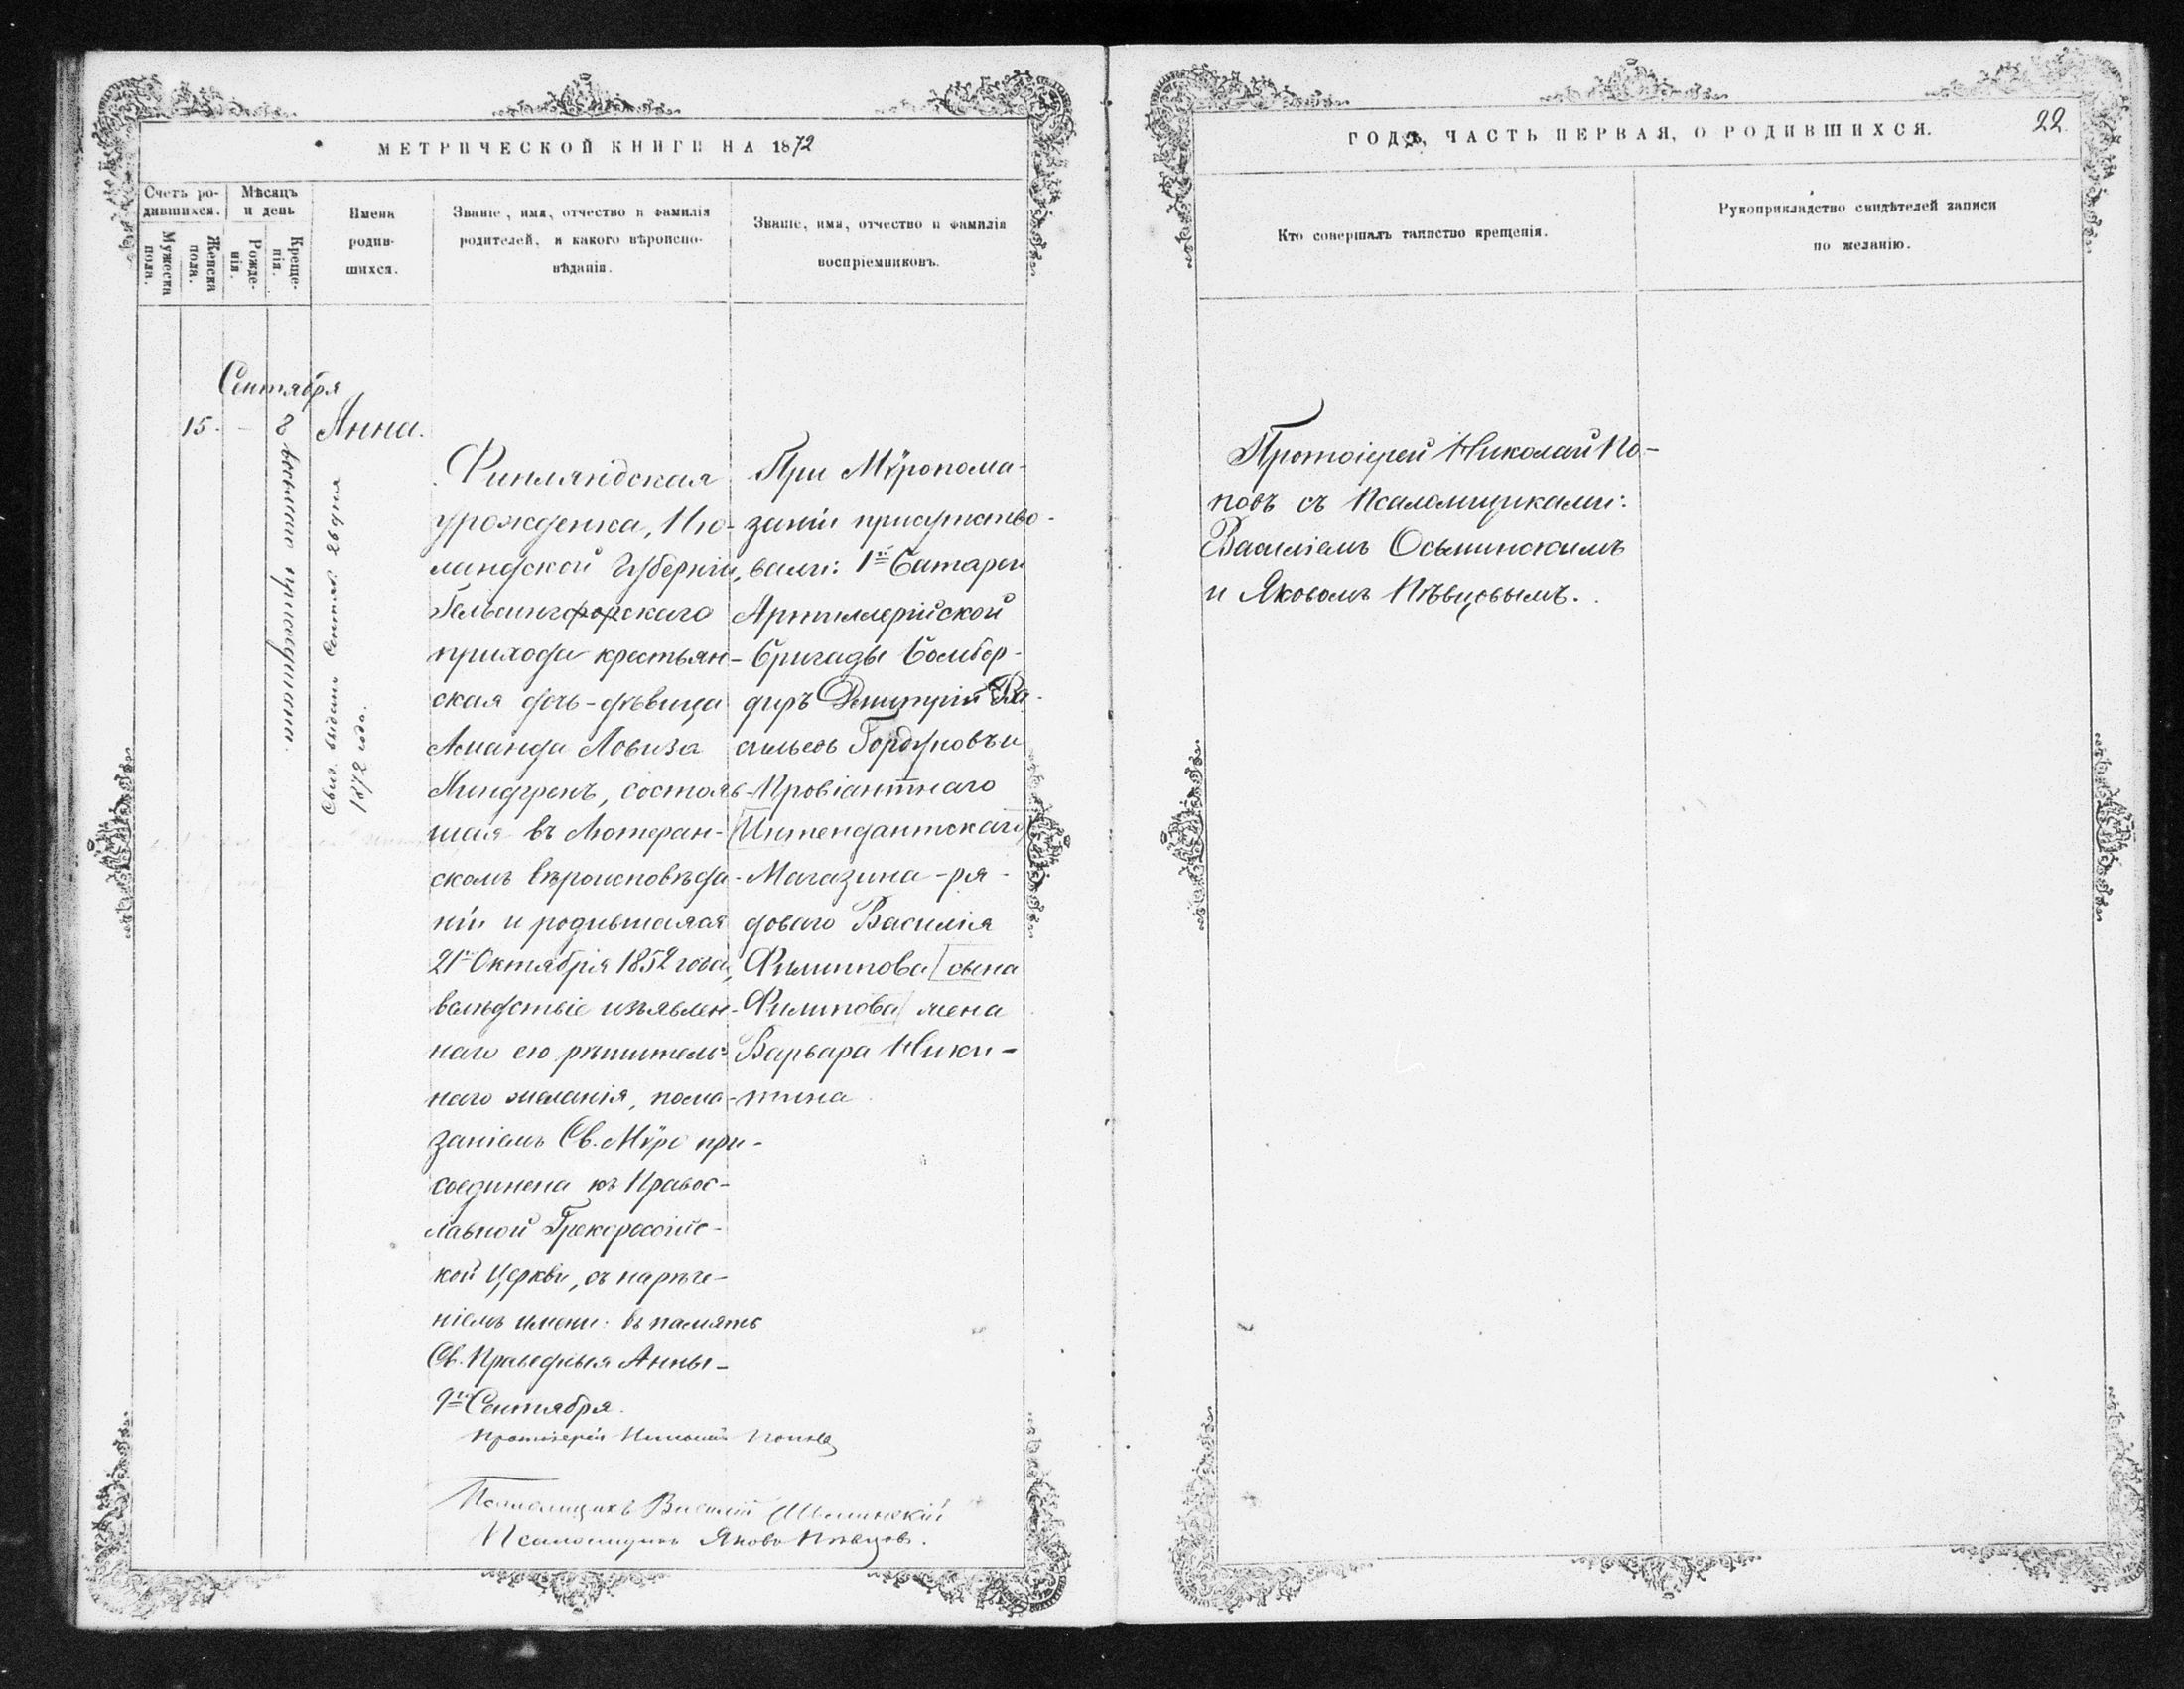 МЕТРИЧЕСКОЙ КНИГИ НА 1872
Счетъ ро-
дившихся.
Мѣсяцъ
и день
Мужеска
пола.
Женска
пола.
Рожде-
нія.
Креще-
нія.
Имена
родив-
шихся.
Званіе, имя, отчество и фамилія
родителей, и какого вѣроиспо-
вѣданія.
Званіе, имя, отчество и фамилія
воспріемниковъ.
Сентября
15. - 8 Анна.
восьмаго присоединена.
Свид. выдано Сентяб. 26 дня
1872 года.
Финляндская
урожденка, Ню-
ландской Губерніи,
Гельсингфорскаго
прихода крестьян-
ская дочь-дѣвица
Аманда Ловиза
Линдгренъ, состояв-
шая въ Лютеран-
скомъ вѣроисповѣда-
ніи и родившаяся
21го Октября 1852 года,
вслѣдствіе изъявлен-
наго ею рѣшитель-
наго желанія, пома-
заніемъ Св. Мѵро при-
соединена къ Правос-
лавной Грекороссійс-
кой Церкви, съ нарѣче-
ніемъ имени: въ память
Св. Праведныя Анны-
9го Сентября.
Протоіерей Николай Поповъ
Псаломщикъ Василій Осьминскій
Псаломщикъ Яковъ Пѣвцовъ.
При Мѵропома-
заніи присутство-
вали: 1й Батареи
Артиллерійской
Бригады Бомбор-
диръ Дмитрій Ва-
сильевъ Горбуновъ и
Провіантнаго
(Интендантскаго)
Магазина - ря-
доваго Василія
Филиппова [сына
Филипова] жена
Варвара Ники-
тина
ГОДЪ, ЧАСТЬ ПЕРВАЯ, О РОДИВШИХСЯ.
22.
Кто совершалъ таинство крещенія.
Рукоприкладство свидѣтелей записи
по желанію.
Протоіерей Николай По-
повъ съ Псаломщиками:
Василіемъ Осьминскимъ
и Яковомъ Пѣвцовымъ.